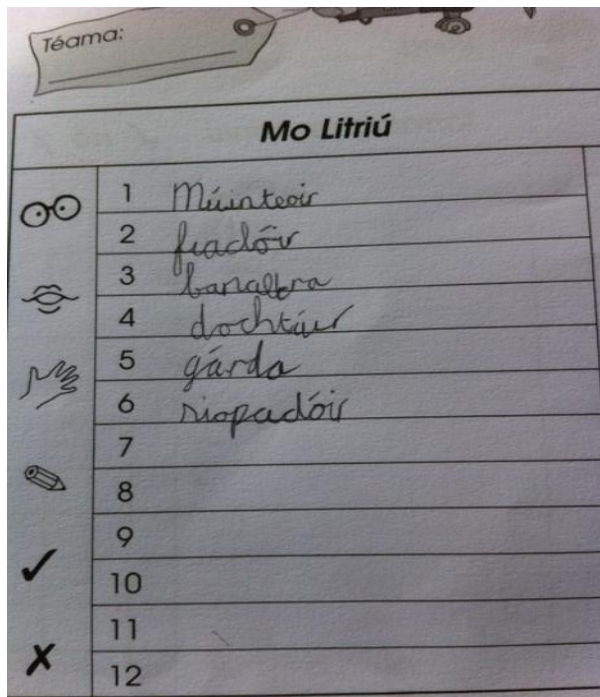 Téama:
Mo Litriú
1 Múinteoir
2 fiadóir
3 banaltra
4 dochtúir
5 gárda
6 siopadóir
7
8
9
10
11
12